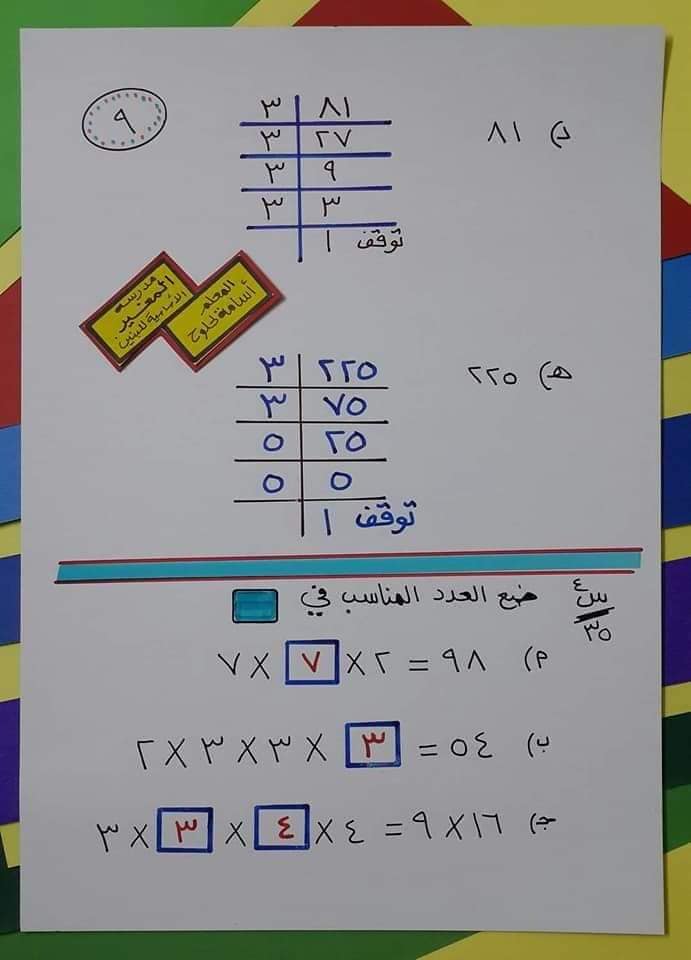 ٩
د) ٨١
٨١ | ٣
٢٧ | ٣
٩ | ٣
٣ | ٣
١ توقف
المعلم
أسامة لحلوح
مدرسة
المغير
الأساسية للبنين
هـ) ٢٢٥
٢٢٥ | ٣
٧٥ | ٣
٢٥ | ٥
٥ | ٥
١ توقف
س٤ ضع العدد المناسب في
٣٥
م) ٩٨ = ٢ × ٧ × ٧
ب) ٥٤ = ٣ × ٣ × ٣ × ٢
جـ) ١٦ × ٩ = ٤ × ٤ × ٣ × ٣